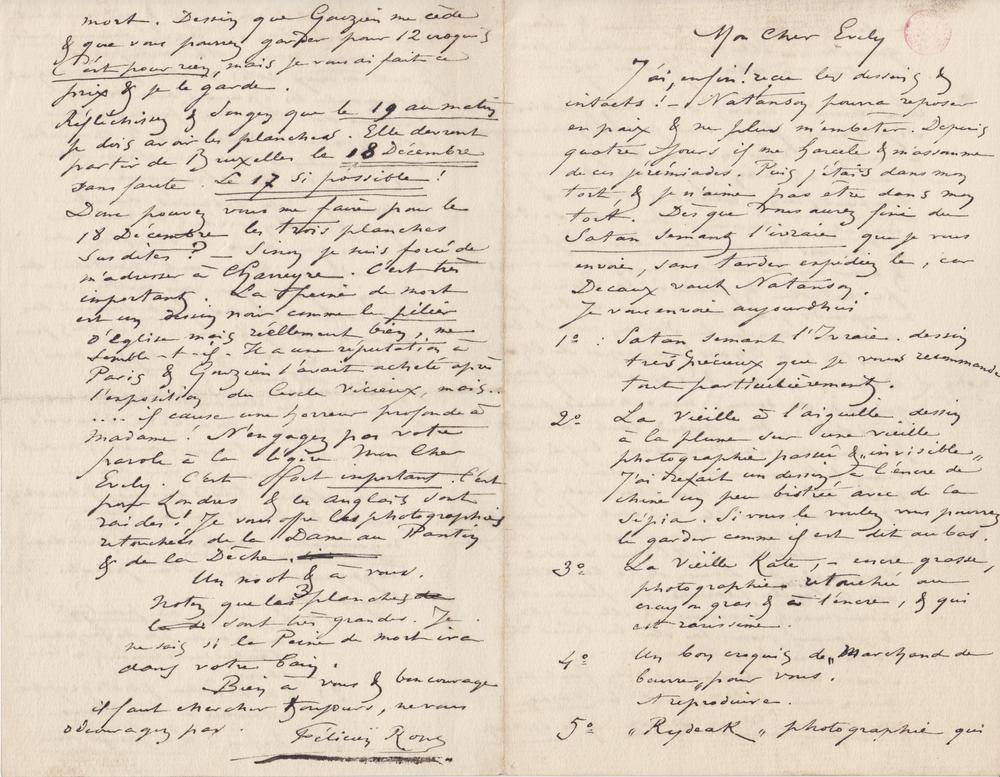 Mon Cher Evely
J'ai, enfin! recu les dessins &
intacts! – Natanson pourra reposer
en paix & ne plus m'embeter. Depuis
quatre jours il me harcele & m'assomme
de ces jérémiades. Puis j'étais dans mon
tort, & je n'aime pas etre dans mon
tort. Dès que vous aurez fini du
Satan semant l'ivraie que je vous
envoie, sans tarder expédiez le, car
Decaux vaut Natanson.
Je vous envoie aujourdhui
1º : Satan semant l'Ivraie. dessin
très précieux que je vous recommande
tout particulièrement.
2º La Vieille à l'aiguille dessin
à la plume sur une vieille
photographie passée & „invisible"
J'ai refait un dessin, à l'encre de
chine un peu bistrée avec de la
Sépia. Si vous le voulez vous pourrez
le garder comme il est dit au bas.
3º La Vieille Kate, – encre grasse,
photographie retouchée au
crayon gras & à l'encre, & qui
est rarissime.
4º Un bon croquis de „Marchand de
beurre„ pour vous.
A reproduire.
5º „Rydeak„ photographie qui
mort. Dessin que Gouzien me cède
& que vous pourrez garder pour 12 croquis
C'est pour rien, mais je vous ai fait ce
prix & je le garde.
Réfléchissez & Songez que le 19 au matin
je dois avoir les planches. Elle devront
partir de Bruxelles le 18 Décembre
sans faute. Le 17 si possible!
Donc pouvez vous me faire pour le
18 Décembre les trois planches
susdites? – Sinon je suis forcé de
m'adresser à Charreyre. C'est très
important. La Peine de mort
est un dessin noir comme le pilier
d'Eglise mais réellement bien, me
semble-t-il. Il a une réputation à
Paris & Gouzien l'avait acheté après
l'exposition du Cercle vicieux, mais..
.... il cause une horreur profonde à
Madame! N'engagez pas votre
parole à la légère Mon Cher
Evely. C'est fort important. C'est
pour Londres & les anglais sont
raides! Je vous offre les photographies
retouchées de la Dame au Pantin
& de la Dèche.
Un mot & à vous.
Notez que les 3 planches
sont très grandes. Je
ne sais si la Peine de mort ira
dans votre bain.
Bien à vous & bon courage
il faut chercher toujours, ne vous
découragez pas.
Félicien Rops